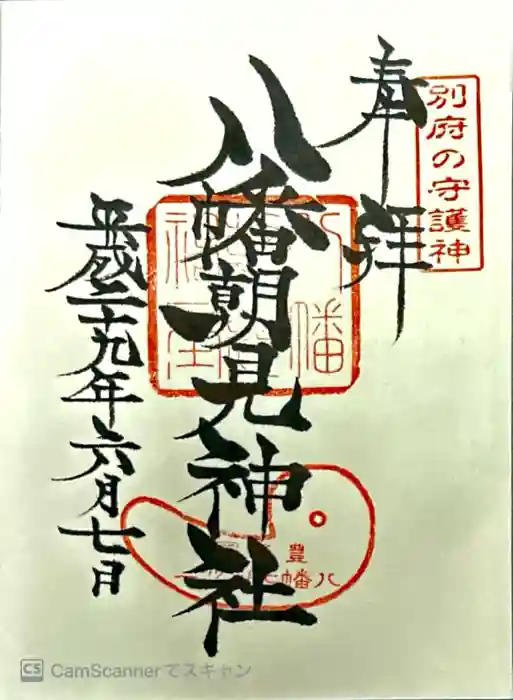 別府の守護神
奉拝
八幡朝見神社
平成二十九年六月七日
豊
八幡
CS CamScannerでスキャン